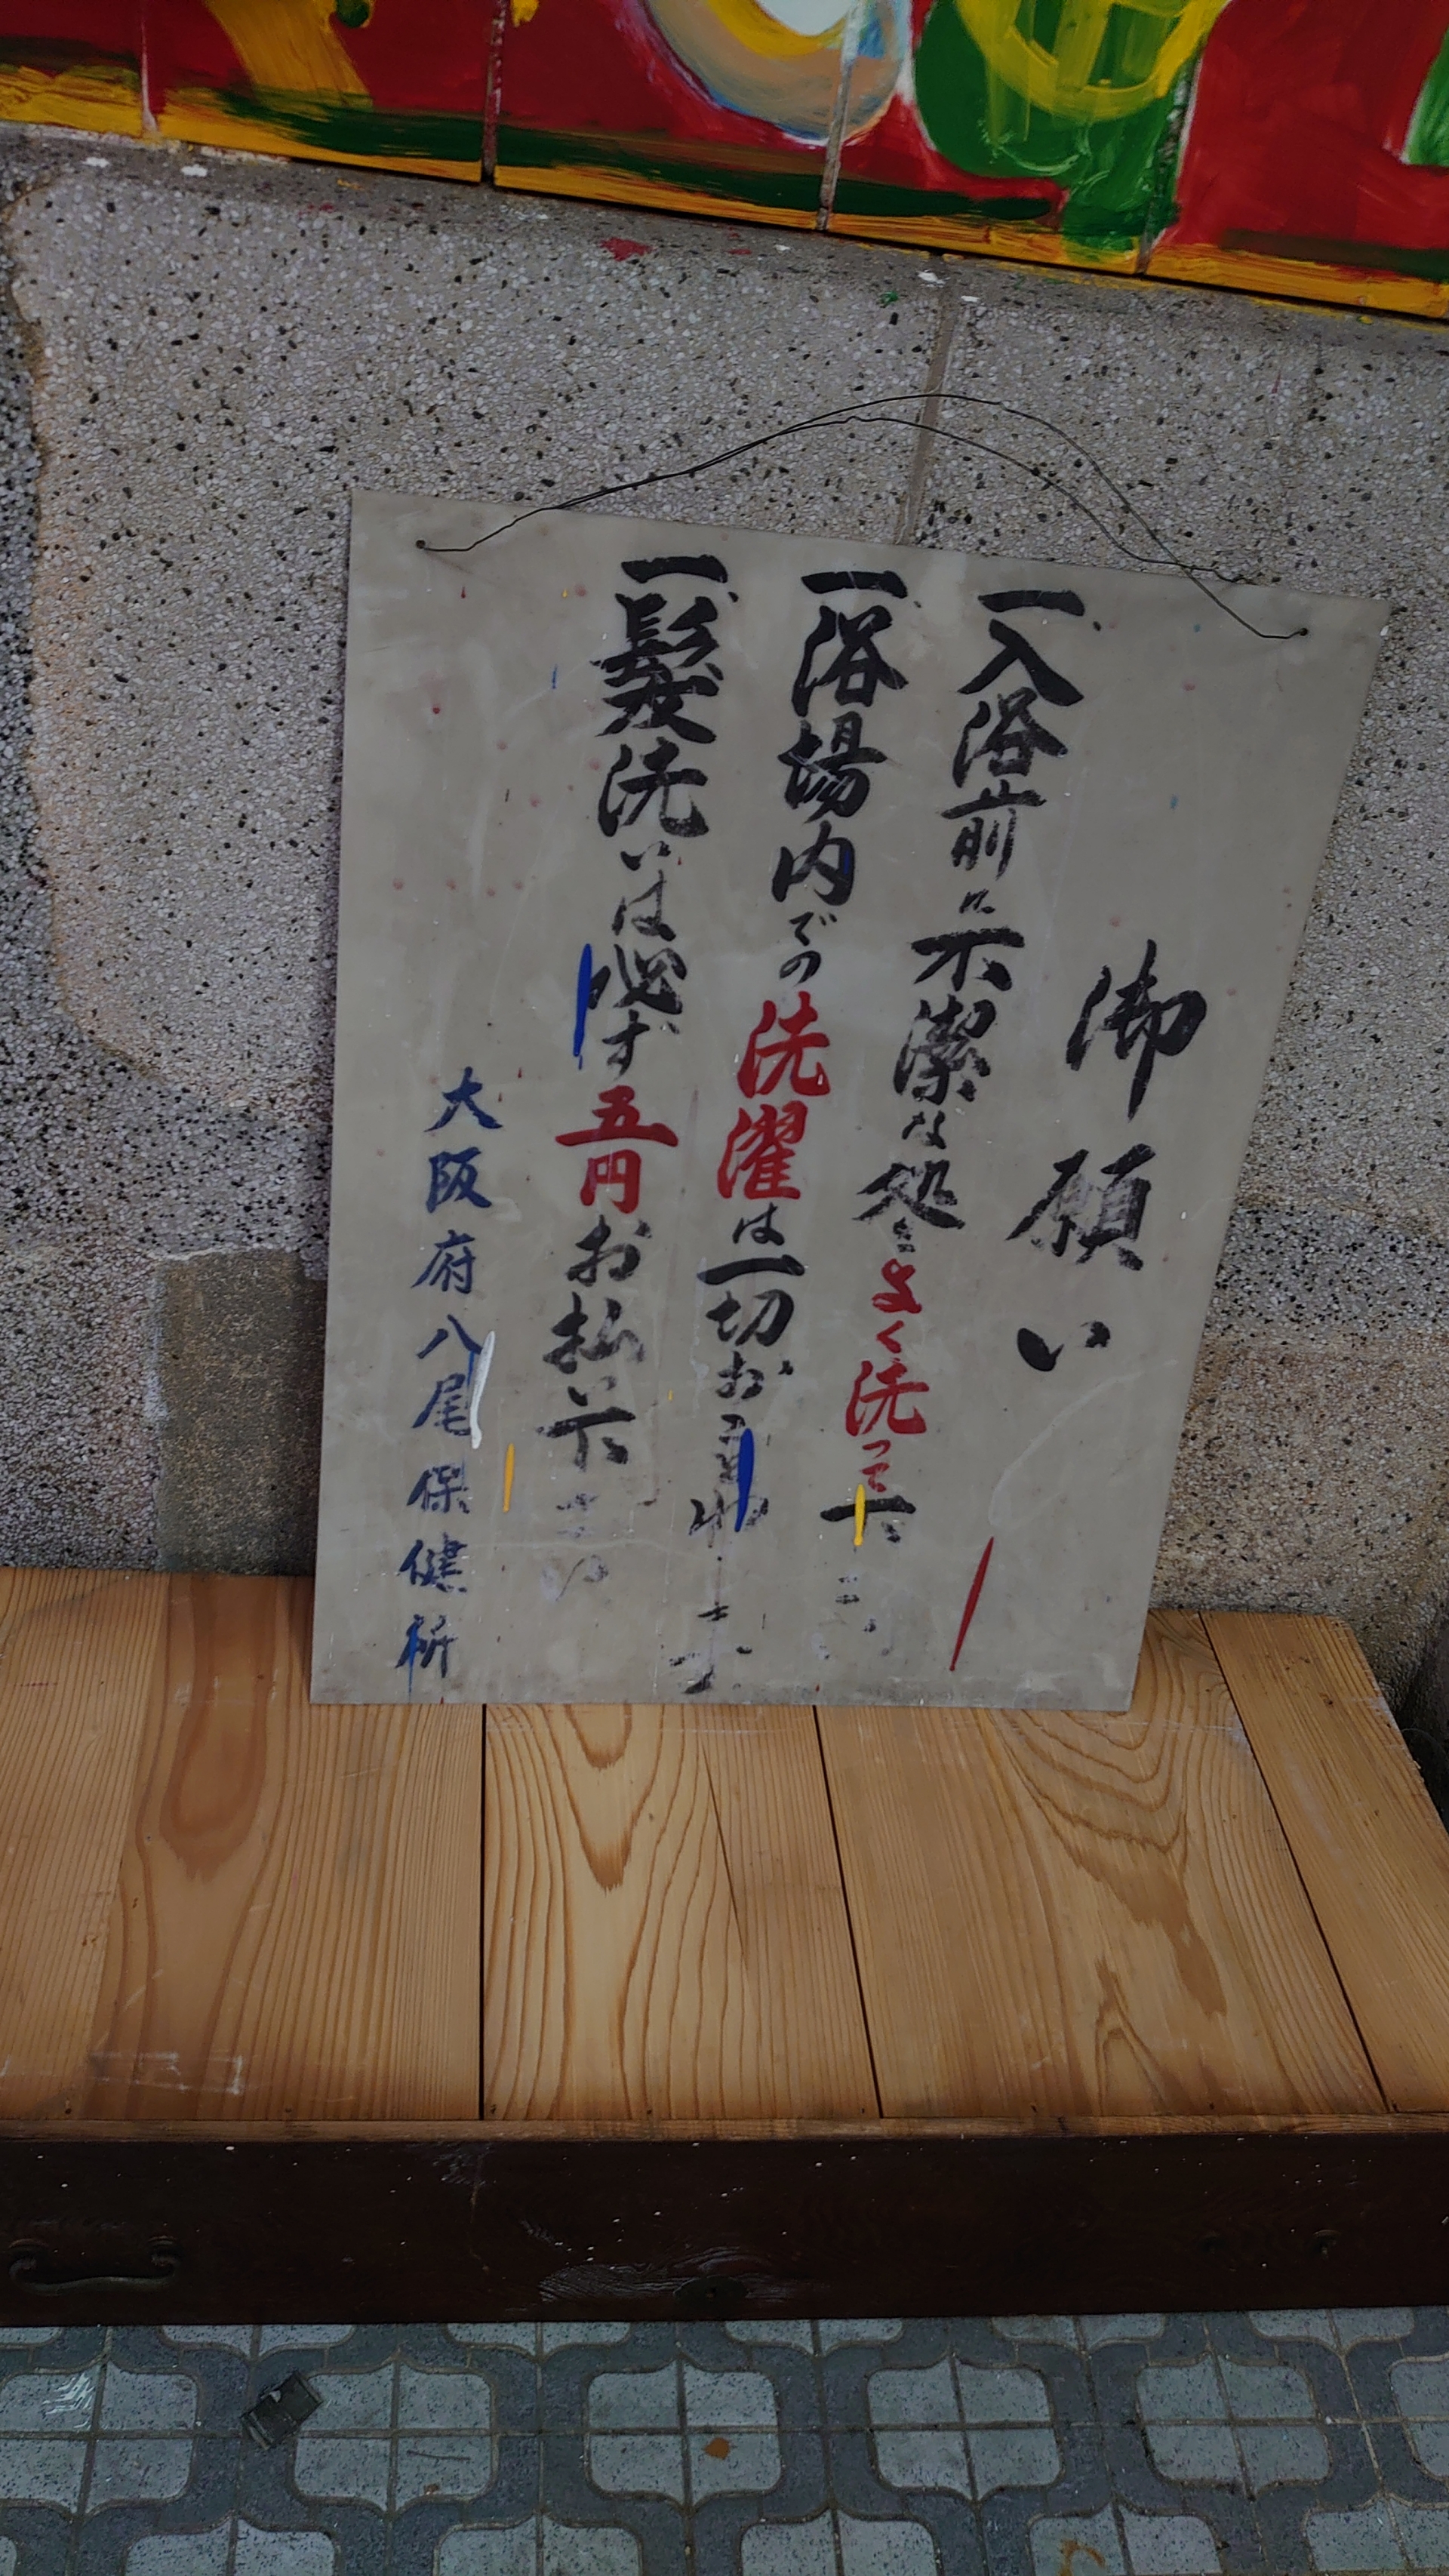 御願い
一、入浴前に不潔な処をよく洗って下さい
一、浴場内での洗濯は一切お
一、髪洗いは必ず五円お払い下さい
大阪府八尾保健所